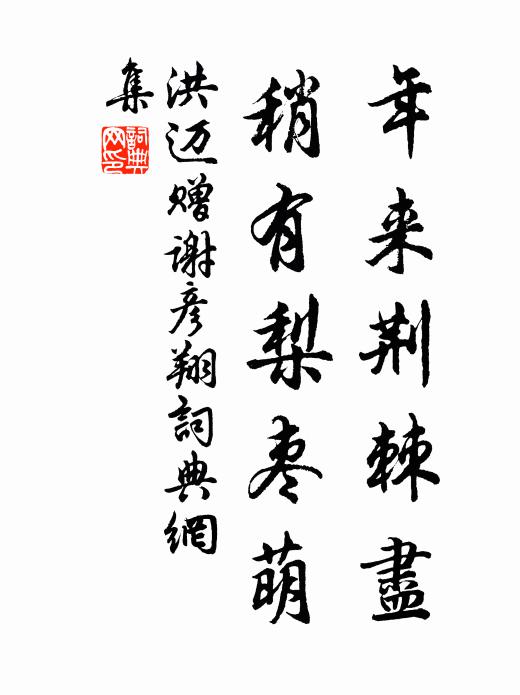 年来荆棘盡
稍有梨枣萌
洪迈赠谢彦翔詞典網
集
詞典
网印